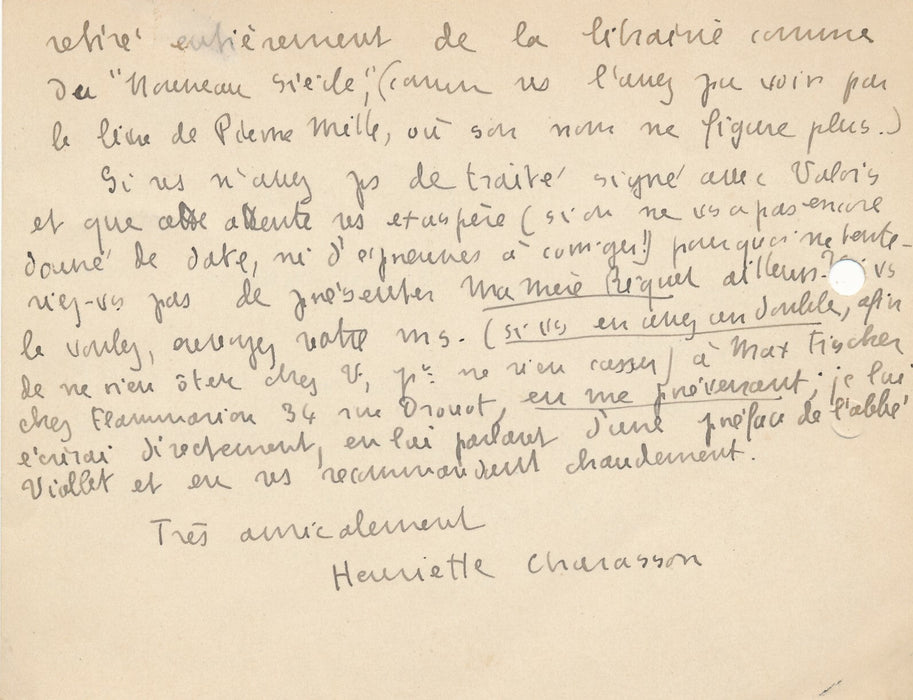 retiré entièrement de la librairie comme
du "Nouveau Siècle", (comme vs l'avez pu voir par
le livre de Pierre Mille, où son nom ne figure plus.)
Si vs n'avez ps de traité signé avec Valois
et que cette attente vs exaspère (si on ne vs a pas encore
donné de date, ni d'épreuves à corriger!) pourquoi ne tente-
riez-vs pas de présenter Ma Mère Riquet ailleurs. vs
le voulez, envoyez votre ms. (si vs en avez un double, afin
de ne rien ôter chez V, pr ne rien casser) à Max Fischer
chez Flammarion 34 rue Drouot, en me prévenant; je lui
écrirai directement, en lui parlant d'une préface de l'abbé
Viollet et en vs recommandant chaudement.
Très amicalement
Henriette Charasson